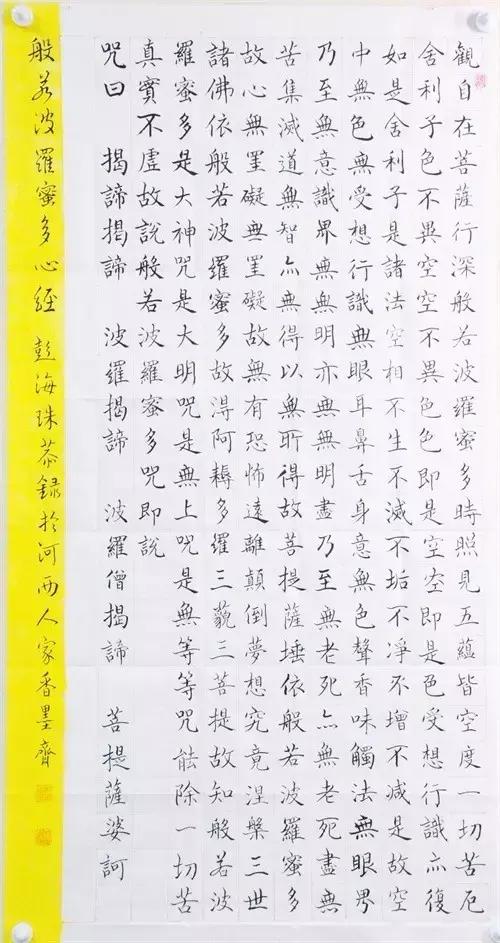 觀自在菩薩行深般若波羅蜜多時照見五蘊皆空度一切苦厄
舍利子色不異空空不異色色即是空空即是色受想行識亦復
如是舍利子是諸法空相不生不滅不垢不淨不增不減是故空
中無色無受想行識無眼耳鼻舌身意無色聲香味觸法無眼界
乃至無意識界無無明亦無無明盡乃至無老死亦無老死盡無
苦集滅道無智亦無得以無所得故菩提薩埵依般若波羅蜜多
故心無罣礙無罣礙故無有恐怖遠離顛倒夢想究竟涅槃三世
諸佛依般若波羅蜜多故得阿耨多羅三藐三菩提故知般若波
羅蜜多是大神咒是大明咒是無上咒是無等等咒能除一切苦
真實不虛故說般若波羅蜜多咒即說
咒曰 揭諦揭諦 波羅揭諦 波羅僧揭諦 菩提薩婆訶
般若波羅蜜多心經 彭海珠恭錄於河西人家香墨齋